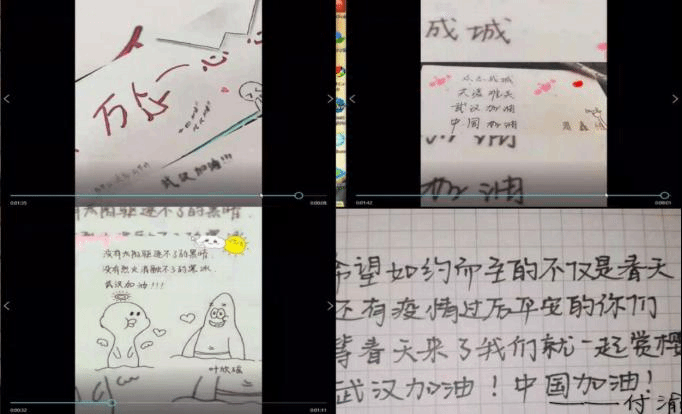 万众一心
武汉加油!!!
01:35
00:08
成城
众志成城
武汉 加油
中国 加油
加油
01:42
00:01
太阳驱逐不了的黑暗.
没有太阳驱逐不了的黑暗.
没有烈火消融不了的寒冰.
武汉加油!!!
叶欣瑶
00:32
01:11
希望如约而至的不仅是春天
还有疫情过后平安的你们
等春天来了我们就一起赏樱
武汉加油！中国加油！
——付渝